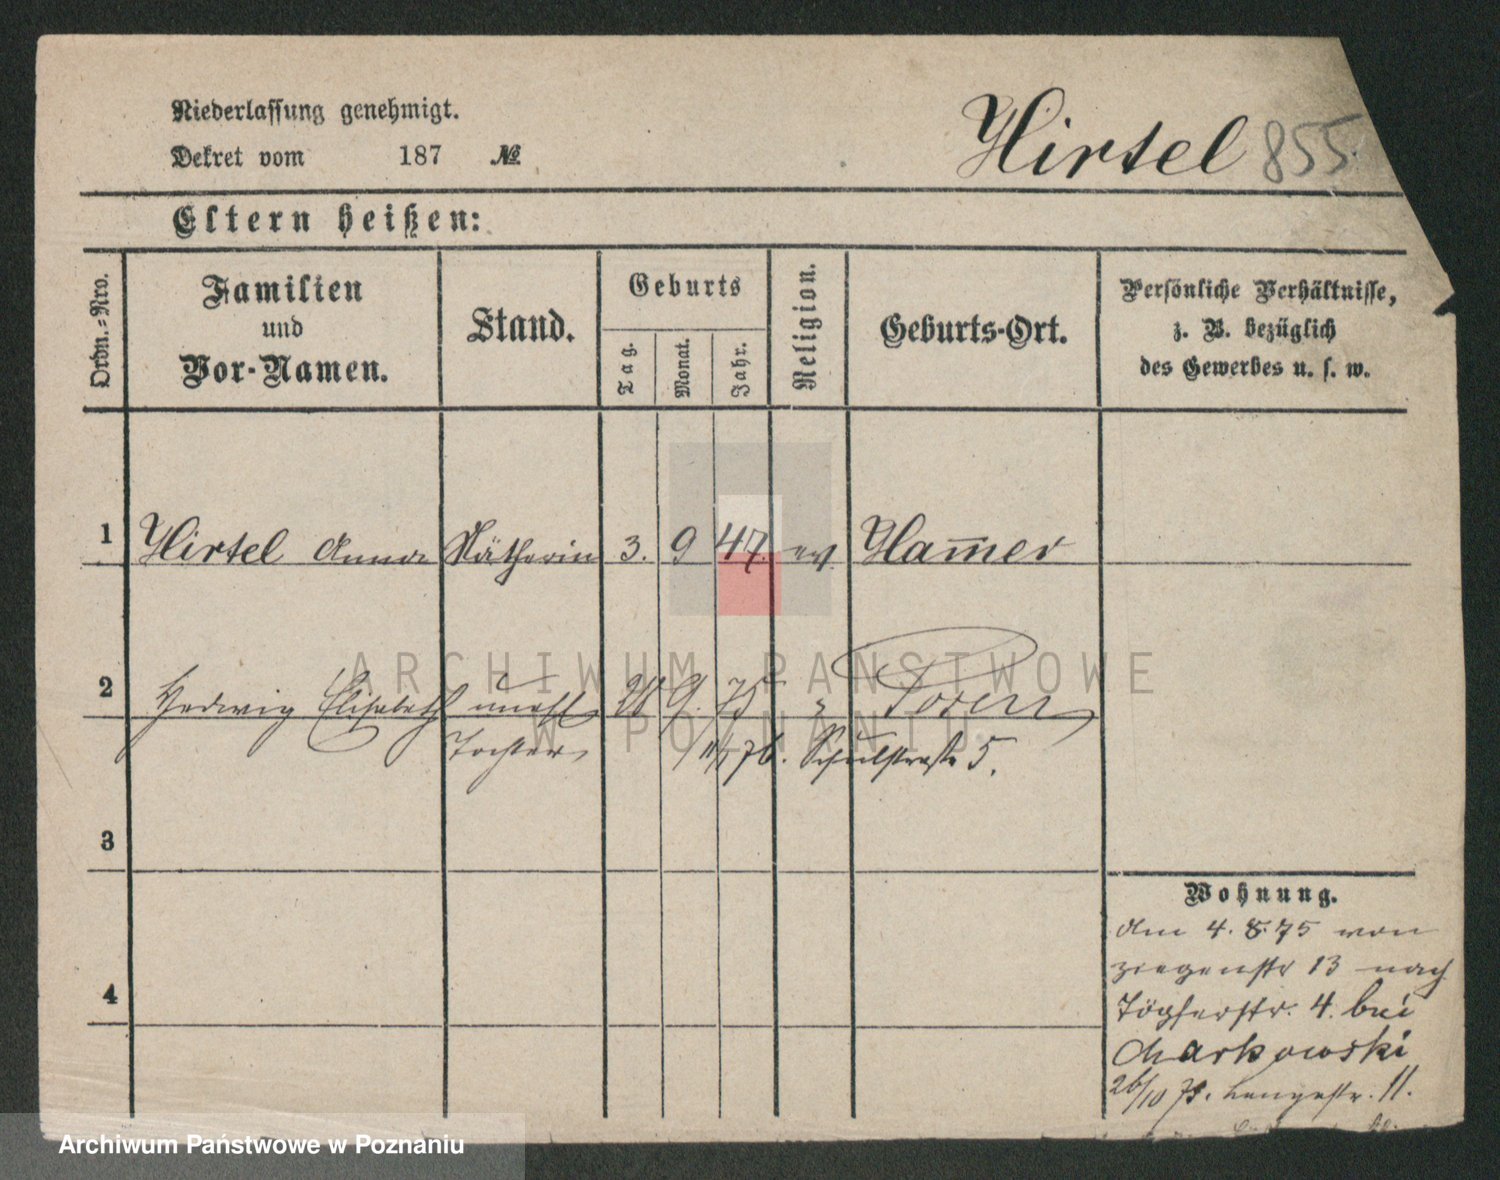 Niederlassung genehmigt.
Dekret vom 187 №
Hirtel 855.
Eltern heißen:
Ordn.-Nro.
Familien
und
Vor-Namen.
Stand.
Geburts
Tag.
Monat.
Jahr.
Religion.
Geburts-Ort.
Persönliche Verhältnisse,
z. B. bezüglich
des Gewerbes u. s. w.
1 Hirtel Anna Nätherin 3. 9 47. ev Ham̅er
2 Hedwig Elisabeth unehl 28 9. 75 " Posen
Tochter
11/1 76. Schulstraße 5.
3
4
Wohnung.
Am 4. 8. 75 von
Ziegenstr 13 nach
Töpferstr. 4. bei
Markowski
26/10 75. Langestr. 11.
ARCHIWUM PAŃSTWOWE
W POZNANIU
Archiwum Państwowe w Poznaniu